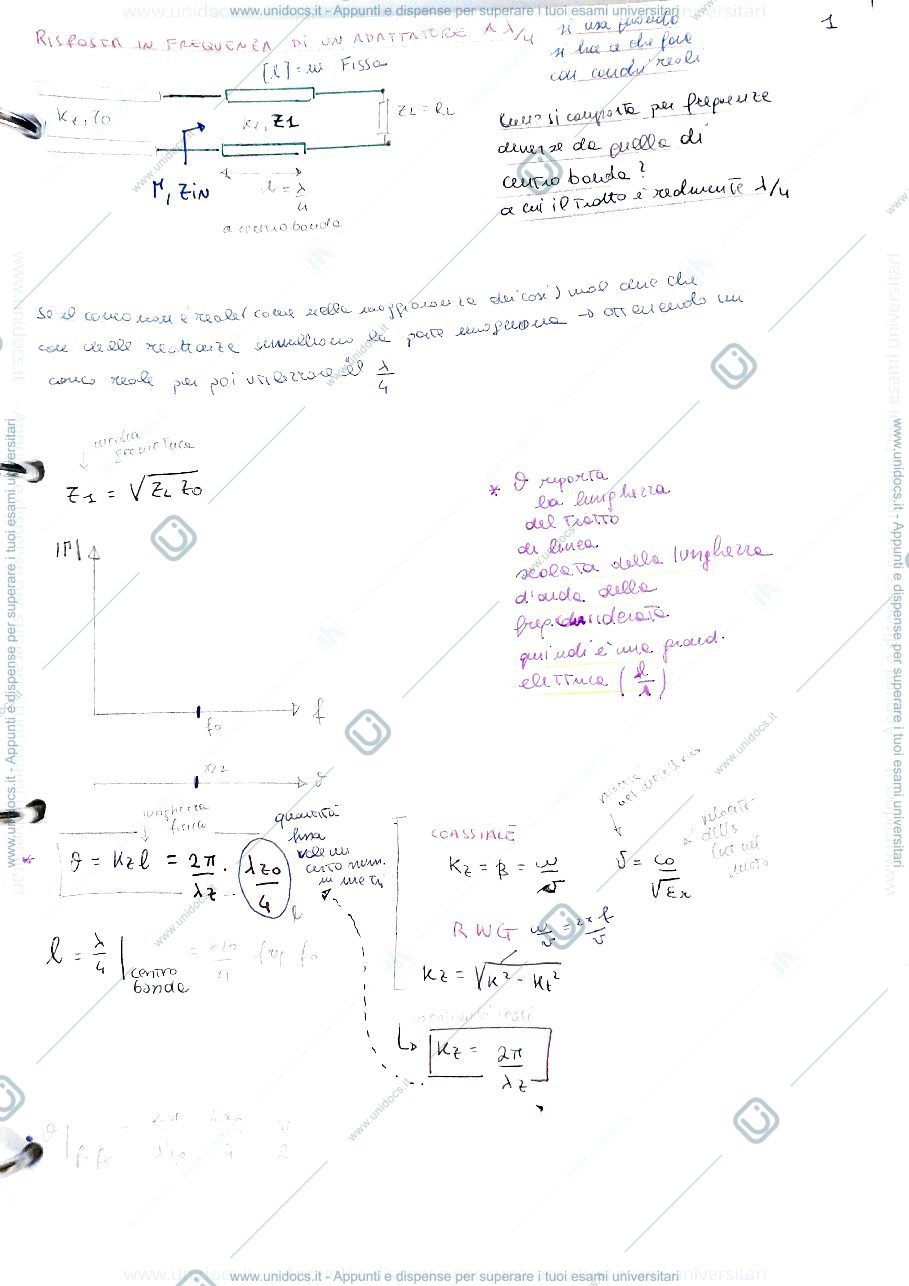 www.unidocs.it - Appunti e dispense per superare i tuoi esami universitari
1
RISPOSTA IN FREQUENZA DI UN ADATTATORE A λ/4
si usa quando
si ha a che fare
con carichi reali
[l] = in Fissa
kz, z0
kz, Z1
ZL = RL
Γ, ZIN
l = λ/4
a centro banda
come si comporta per frequenze
diverse da quella di
centro banda?
a cui il tratto è realmente λ/4
Se il carico non è reale (come nella maggioranza dei casi) vuol dire che
con delle reattanze annulliamo la parte immaginaria → ottenendo un
carico reale per poi utilizzare il λ/4
media
geometrica
Z1 = √ZL Z0
|Γ|
f0
f
π/2
ϑ
* ϑ riporta
la lunghezza
del tratto
di linea
scalata della lunghezza
d'onda della
freq. considerata
quindi è una grand.
elettrica (l/λ)
lunghezza
fisica
quantità
fissa
vale un
certo num.
in metri
* ϑ = kz l = 2π/λz · λz0/4
l
l = λ/4 | centro banda = λz0/4 freq f0
COASSIALE
kz = β = ω/v
v = c0/√εr
velocità
della
luce nel
mezzo
RWG ω/v = 2πf/v
kz = √k² - kt²
↳ kz = 2π/λz
ϑ|f=f0 = 2π/λz0 λz0/4 = π/2
www.unidocs.it - Appunti e dispense per superare i tuoi esami universitari